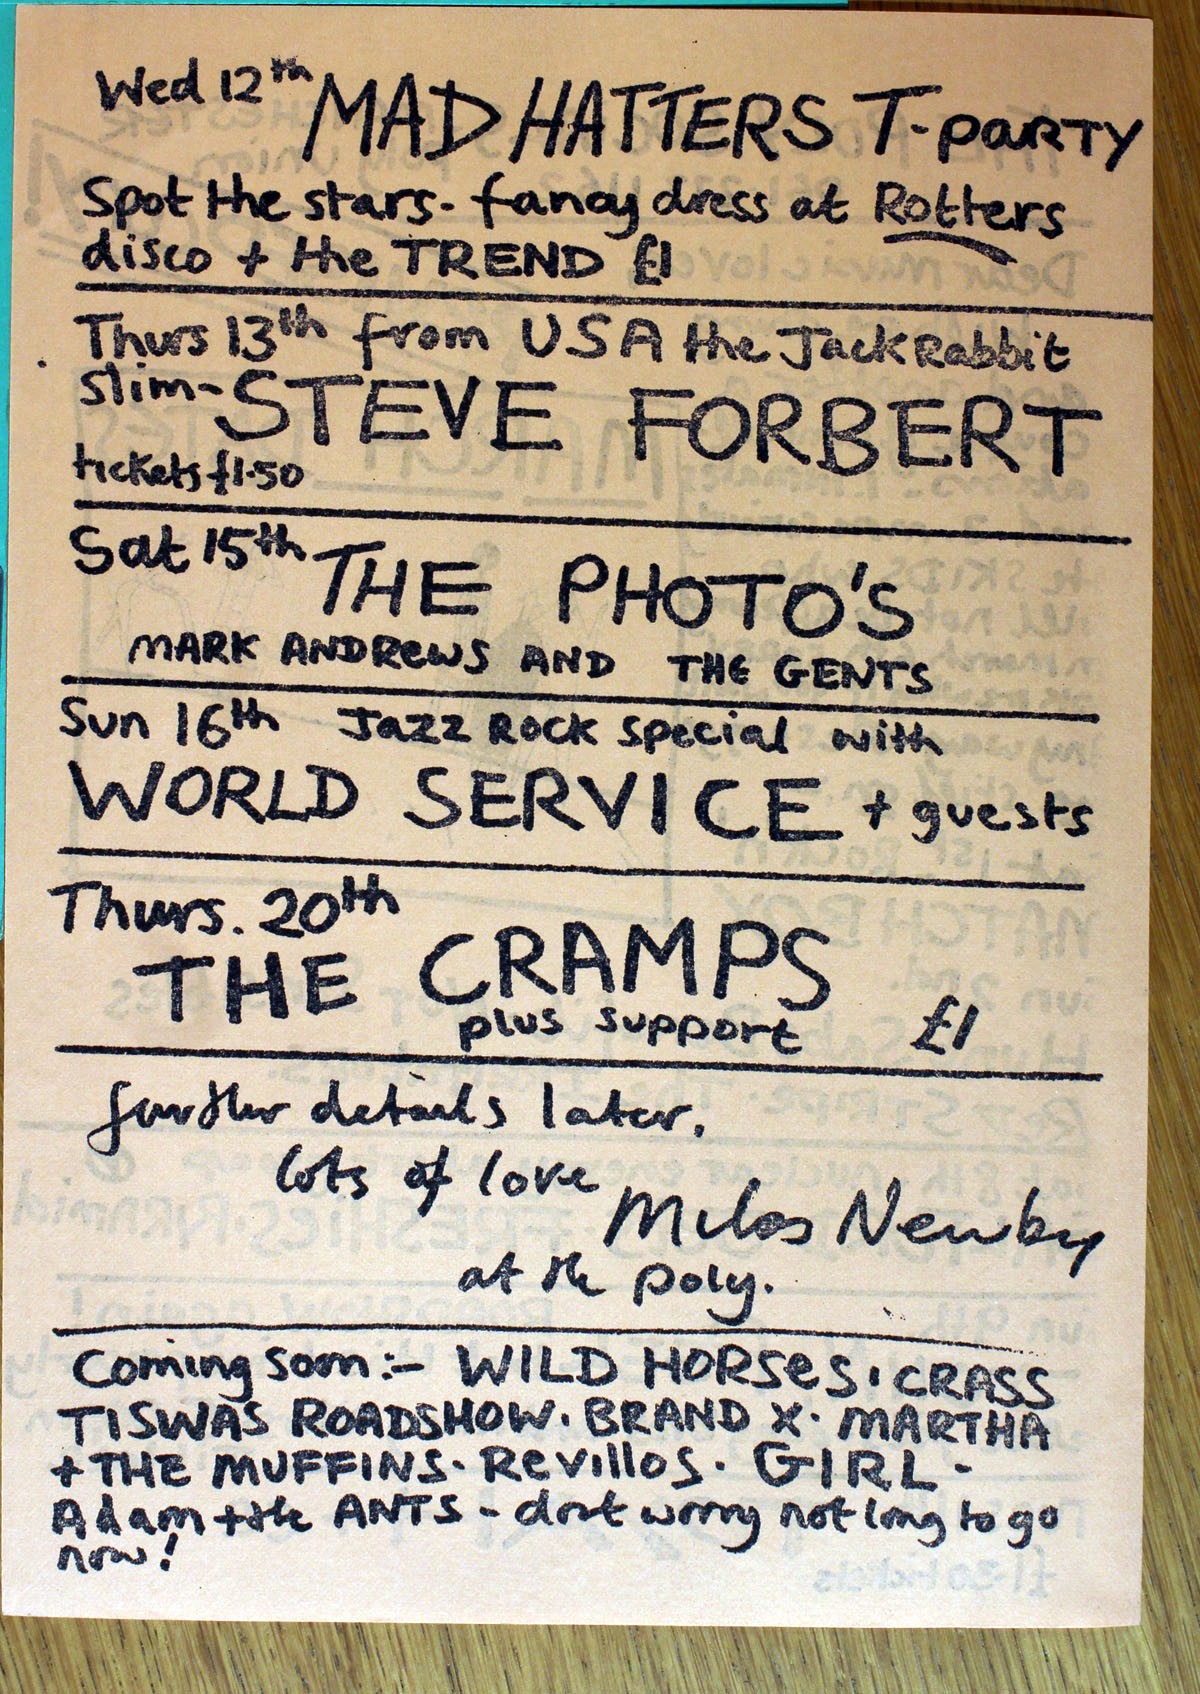 Wed 12th MAD HATTERS T-PARTY
Spot the stars- fancy dress at Rotters
disco + the TREND £1
Thurs 13th from USA the Jack Rabbit
slim- STEVE FORBERT
tickets £1.50
Sat 15th THE PHOTO'S
MARK ANDREWS AND THE GENTS
Sun 16th Jazz ROCK special with
WORLD SERVICE + guests
Thurs. 20th
THE CRAMPS
plus support £1
further details later.
lots of love
Miles Newby
at the poly.
Coming soon:- WILD HORSES. CRASS
TISWAS ROADSHOW. BRAND X. MARTHA
+ THE MUFFINS. Revillos. GIRL-
Adam + the ANTS - dont worry not long to go
now!